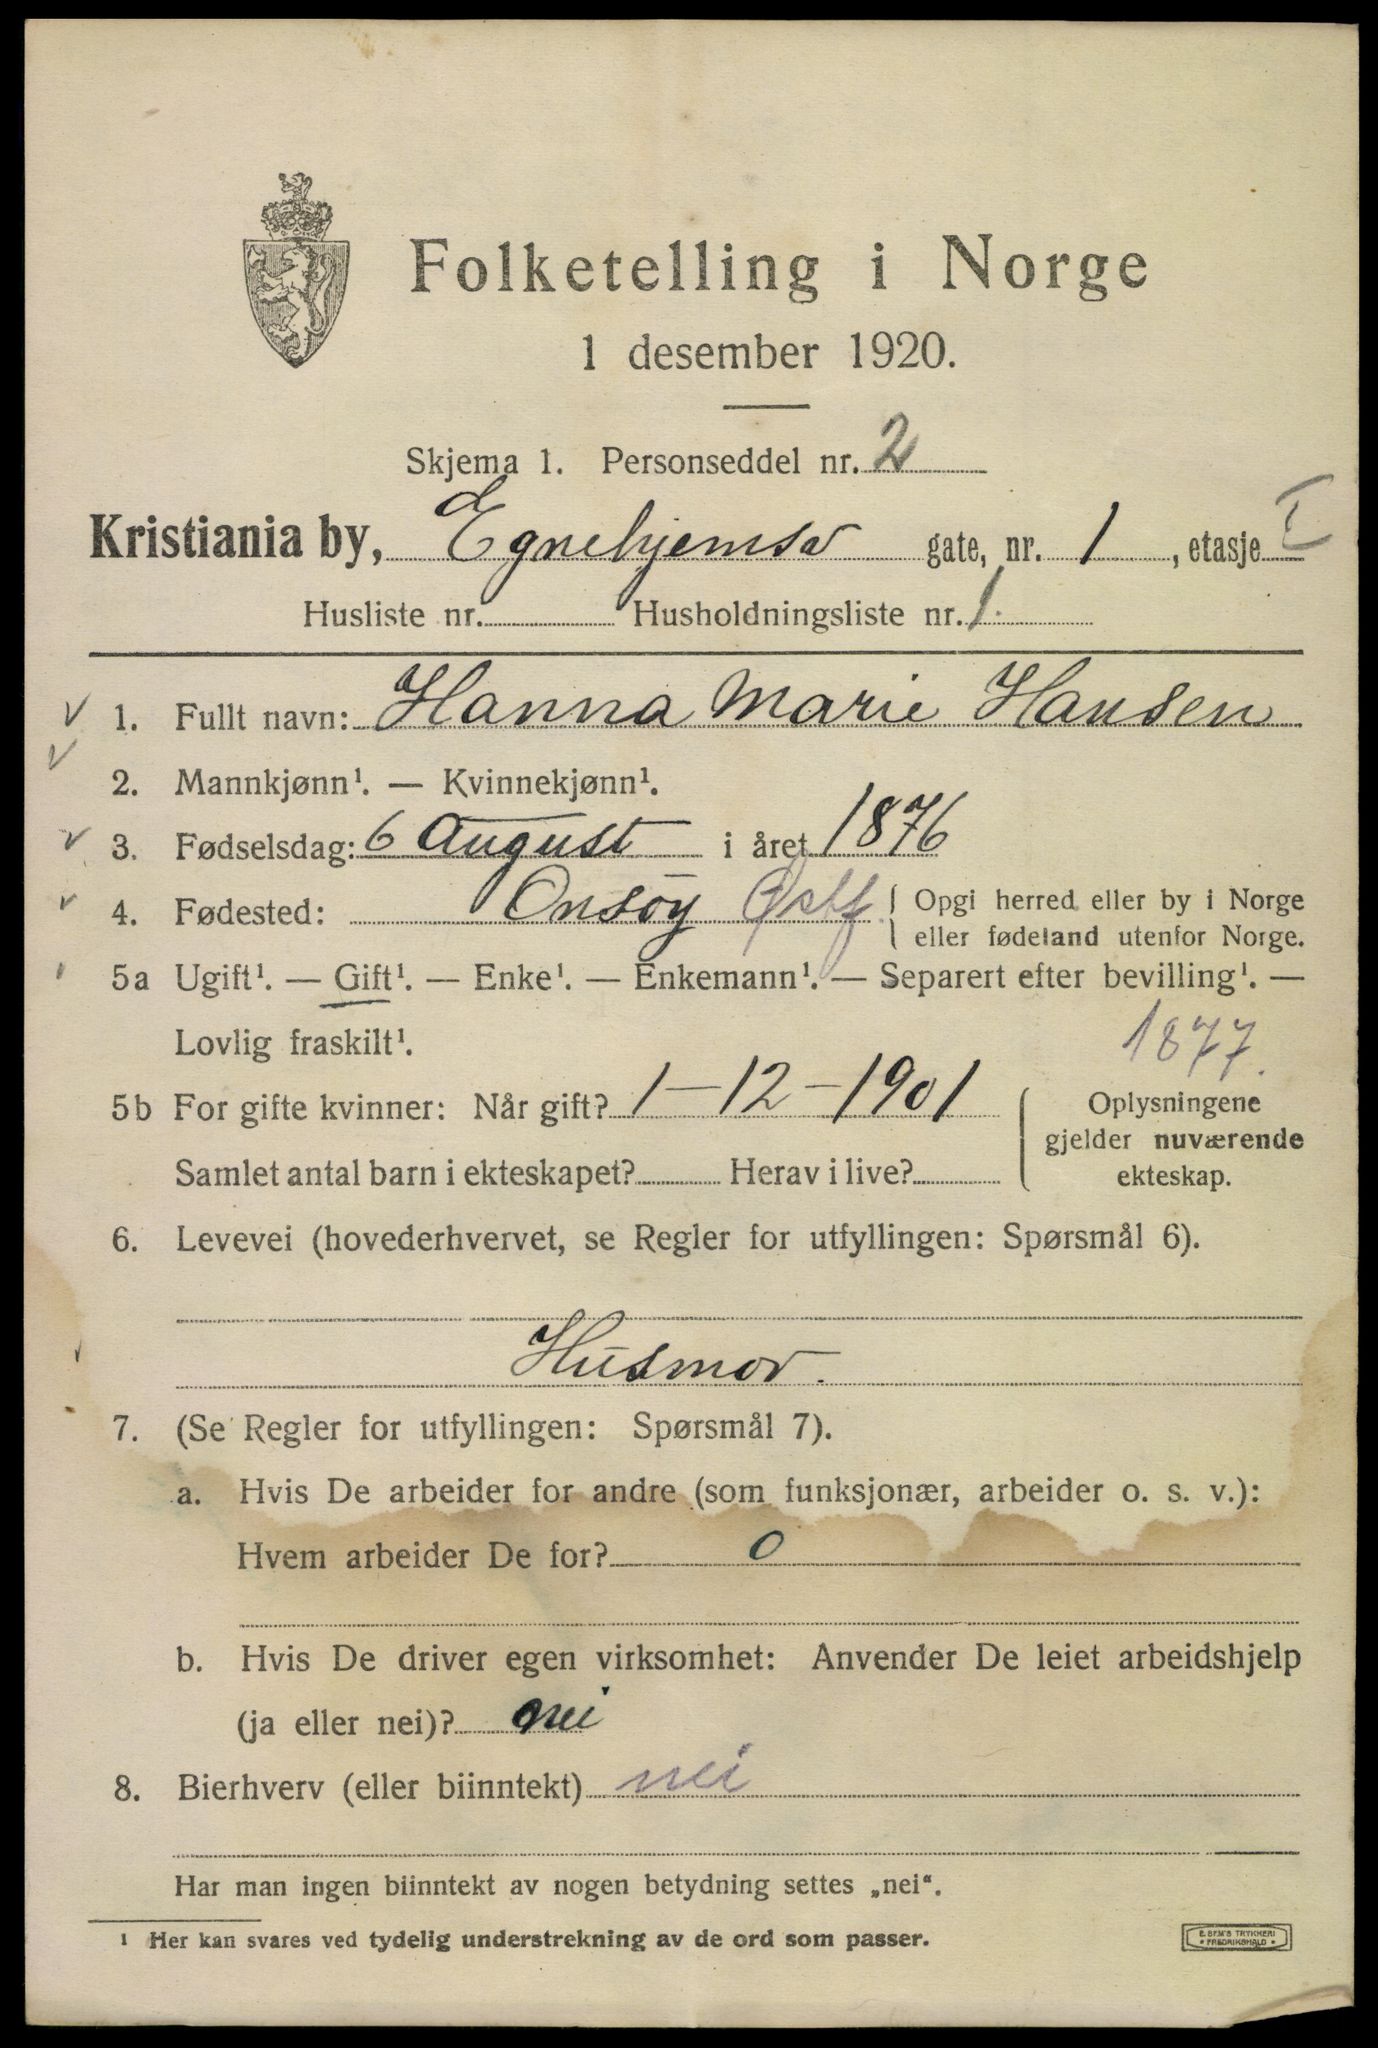 Folketelling i Norge
1 desember 1920.
Skjema 1. Personseddel nr. 2
Kristiania by, Egnehjemsv gate, nr. 1, etasje I
Husliste nr. Husholdningsliste nr. 1.
1. Fullt navn: Hanna Marie Hansen
2. Mannkjønn¹. — Kvinnekjønn¹.
3. Fødselsdag: 6 August i året 1876
4. Fødested: Onsöy Østf. { Opgi herred eller by i Norge
eller fødeland utenfor Norge.
5a Ugift¹. — Gift¹. — Enke¹. — Enkemann¹. — Separert efter bevilling¹. —
Lovlig fraskilt¹.
1877.
5b For gifte kvinner: Når gift? 1-12-1901
Samlet antal barn i ekteskapet? Herav i live?
{ Oplysningene
gjelder nuværende
ekteskap.
6. Levevei (hovederhvervet, se Regler for utfyllingen: Spørsmål 6).
Husmor.
7. (Se Regler for utfyllingen: Spørsmål 7).
a. Hvis De arbeider for andre (som funksjonær, arbeider o. s. v.):
Hvem arbeider De for? 0
b. Hvis De driver egen virksomhet: Anvender De leiet arbeidshjelp
(ja eller nei)? nei
8. Bierhverv (eller biinntekt) nei
Har man ingen biinntekt av nogen betydning settes „nei“.
¹ Her kan svares ved tydelig understrekning av de ord som passer.
E. SEM'S TRYKKERI
• FREDRIKSHALD •